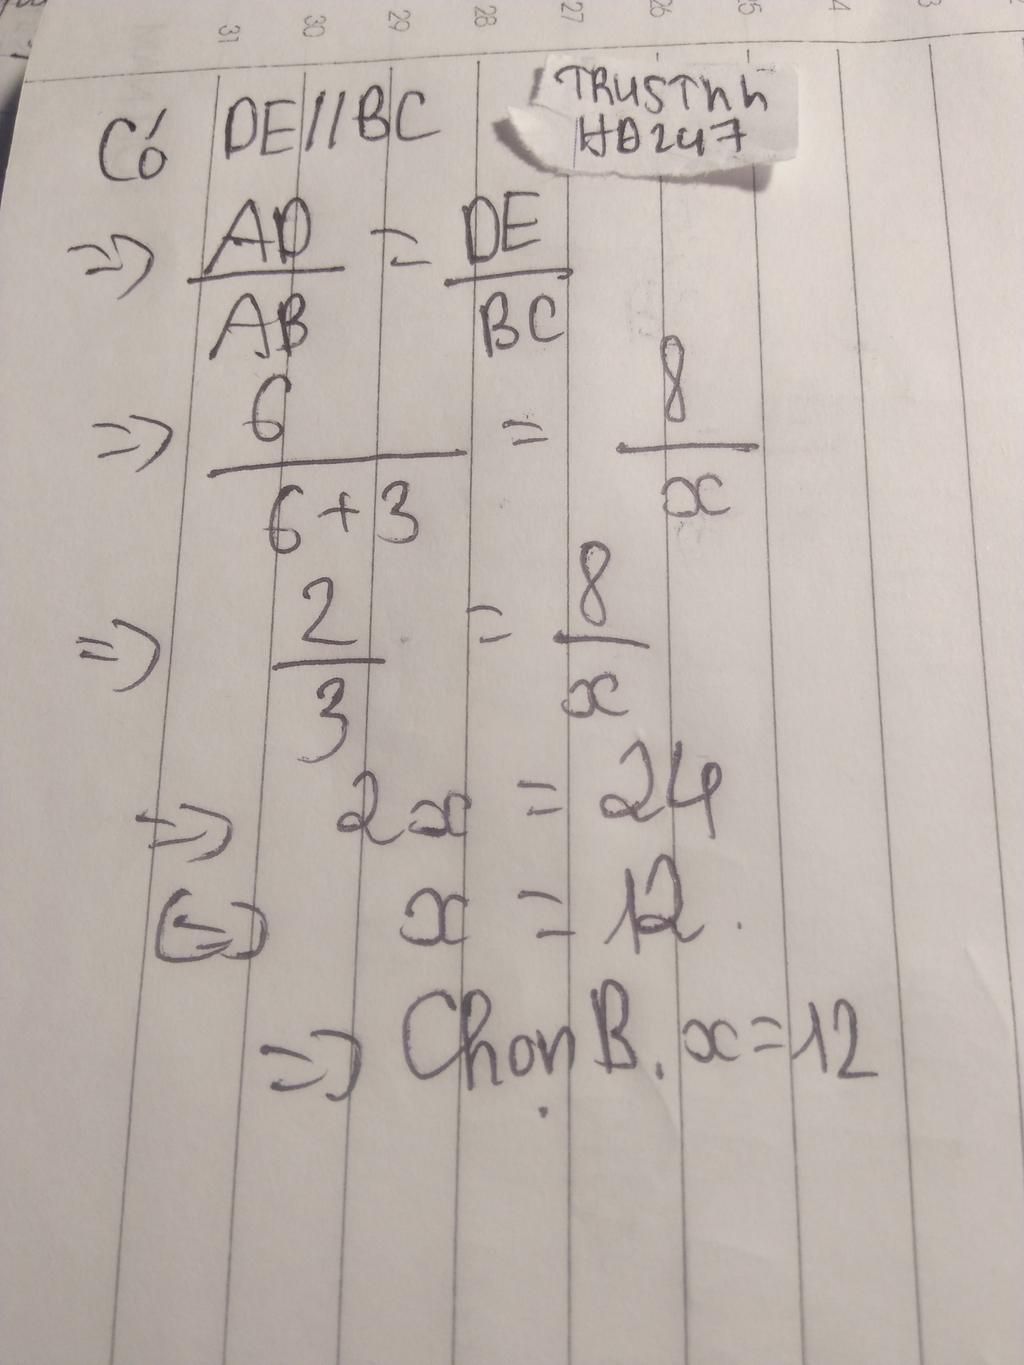 31 30 29 28 27 26 25
Có DE//BC
TRUSTnh
HD247
=> AD/AB = DE/BC
=> 6/(6+3) = 8/x
=> 2/3 = 8/x
=> 2x = 24
<=> x = 12.
=> Chọn B. x = 12